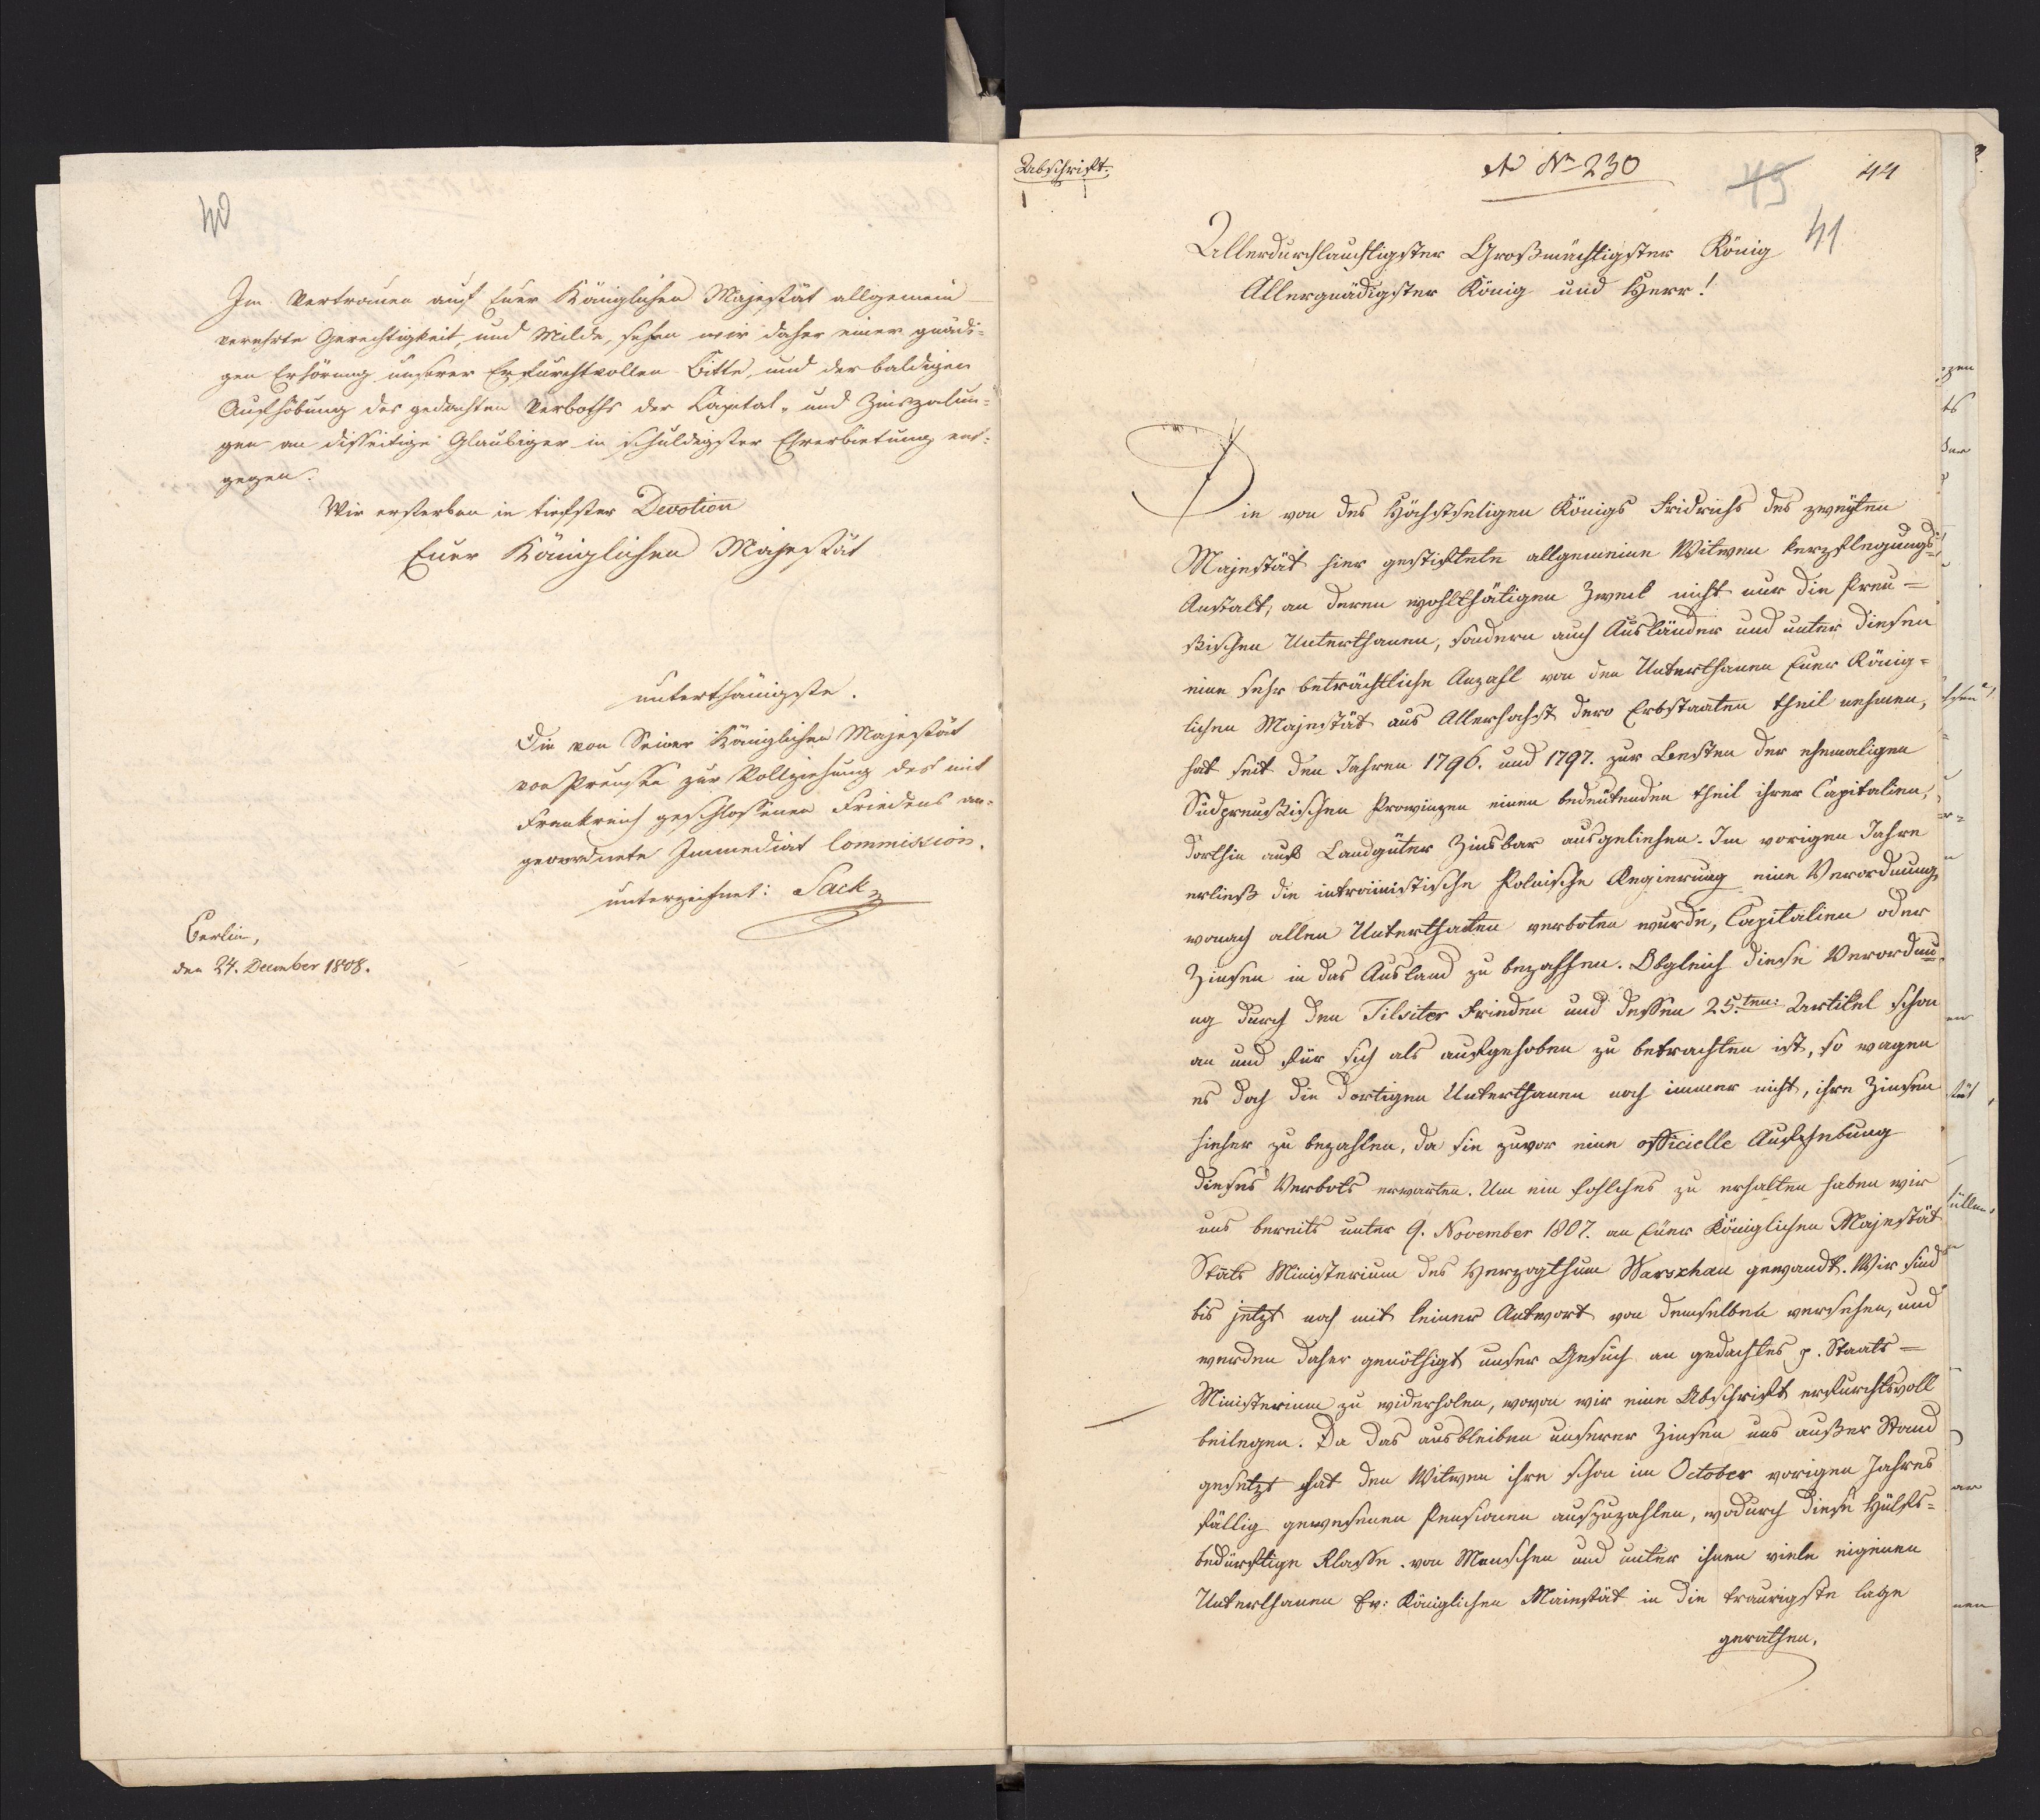 40
Im Vertrauen auf Euer Königlichen Majestät allgemein
verehrte Gerechtigkeit, und Milde, sehen wir daher einer gnädi-
gen Erhörung unserer Erfurchtvollen Bitte, und der baldigen
Aufhöbung des gedachten Verboths der Capital- und Zinszalun-
gen an disseitige Glaubiger in schuldigster Ehrerbietung ent-
gegen.
Wir ersterben in tiefster Devotion
Euer Königlichen Majestät
unterthänigste.
Die von Seiner Königlichen Majestät
von Preussen zur Vollziehung des mit
Frankreich geschlossenen Friedens an-
geordnete Immediat Commission.
unterzeichnet: Sack
Berlin,
den 24. December 1808.
Abschrift.
N 230
43
44
41
Allerdurchlauchtigster Großmächtigster König
Allergnädigster König und Herr!
Die von des Höchstseligen Königs Fridrichs des zweyten
Majestät hier gestiftete allgemeine Witwen Verpflegungs-
Anstalt, an deren wohlthätigen Zweck nicht nur die Preu-
ßischen Unterthanen, sondern auch Ausländer und unter diesen
eine sehr beträchtliche Anzahl von den Unterthanen Euer König-
lichen Majestät aus Allerhöchst dero Erbstaaten theil nehmen,
hat seit den Jahren 1796. und 1797. zur Besten der ehemaligen
Südpreußischen Provinzen einen bedeutenden theil ihrer Capitalien,
dorthin auf Landgüter Zinsbar ausgeliehen. Im vorigen Jahre
erließ die intrimistische Polnische Regierung eine Verordnung,
wonach allen Unterthanen verboten wurde, Capitalien oder
Zinsen in das Ausland zu bezahlen. Obgleich diese Verordnu-
ng durch den Tilsiter Frieden und dessen 25.ten: Artikel schon
an und für sich als aufgehoben zu betrachten ist, so wagen
es doch die dortigen Unterthanen noch immer nicht, ihre Zinsen
hieher zu bezahlen, da sie zuvor eine officielle Aufhebung
dieses Verbots erwarten. Um ein sohlches zu erhalten haben wir
uns bereits unter 9. November 1807. an Euer Königlichen Majestät
Stats Ministerium des Herzogthum Warschau gewandt. Wir sind
bis jetzt noch mit keiner Antwort von demselben versehen, und
werden daher genöthigt unser Gesuch an gedachtes p. Staats-
Ministerium zu widerholen, wovon wir eine Abschrift erfurchtsvoll
beilegen. Da das ausbleiben unserer Zinsen uns außer Stand
gesetzt hat den Witwen ihre schon im October vorigen Jahres
fällig gewesenen Pensionen auszuzahlen, wodurch diese Hülfs-
bedürftige Klasse von Menschen und unter ihnen viele eigenen
Unterthanen Ew: Königlichen Maiestät in die traurigste lage
gerathen.